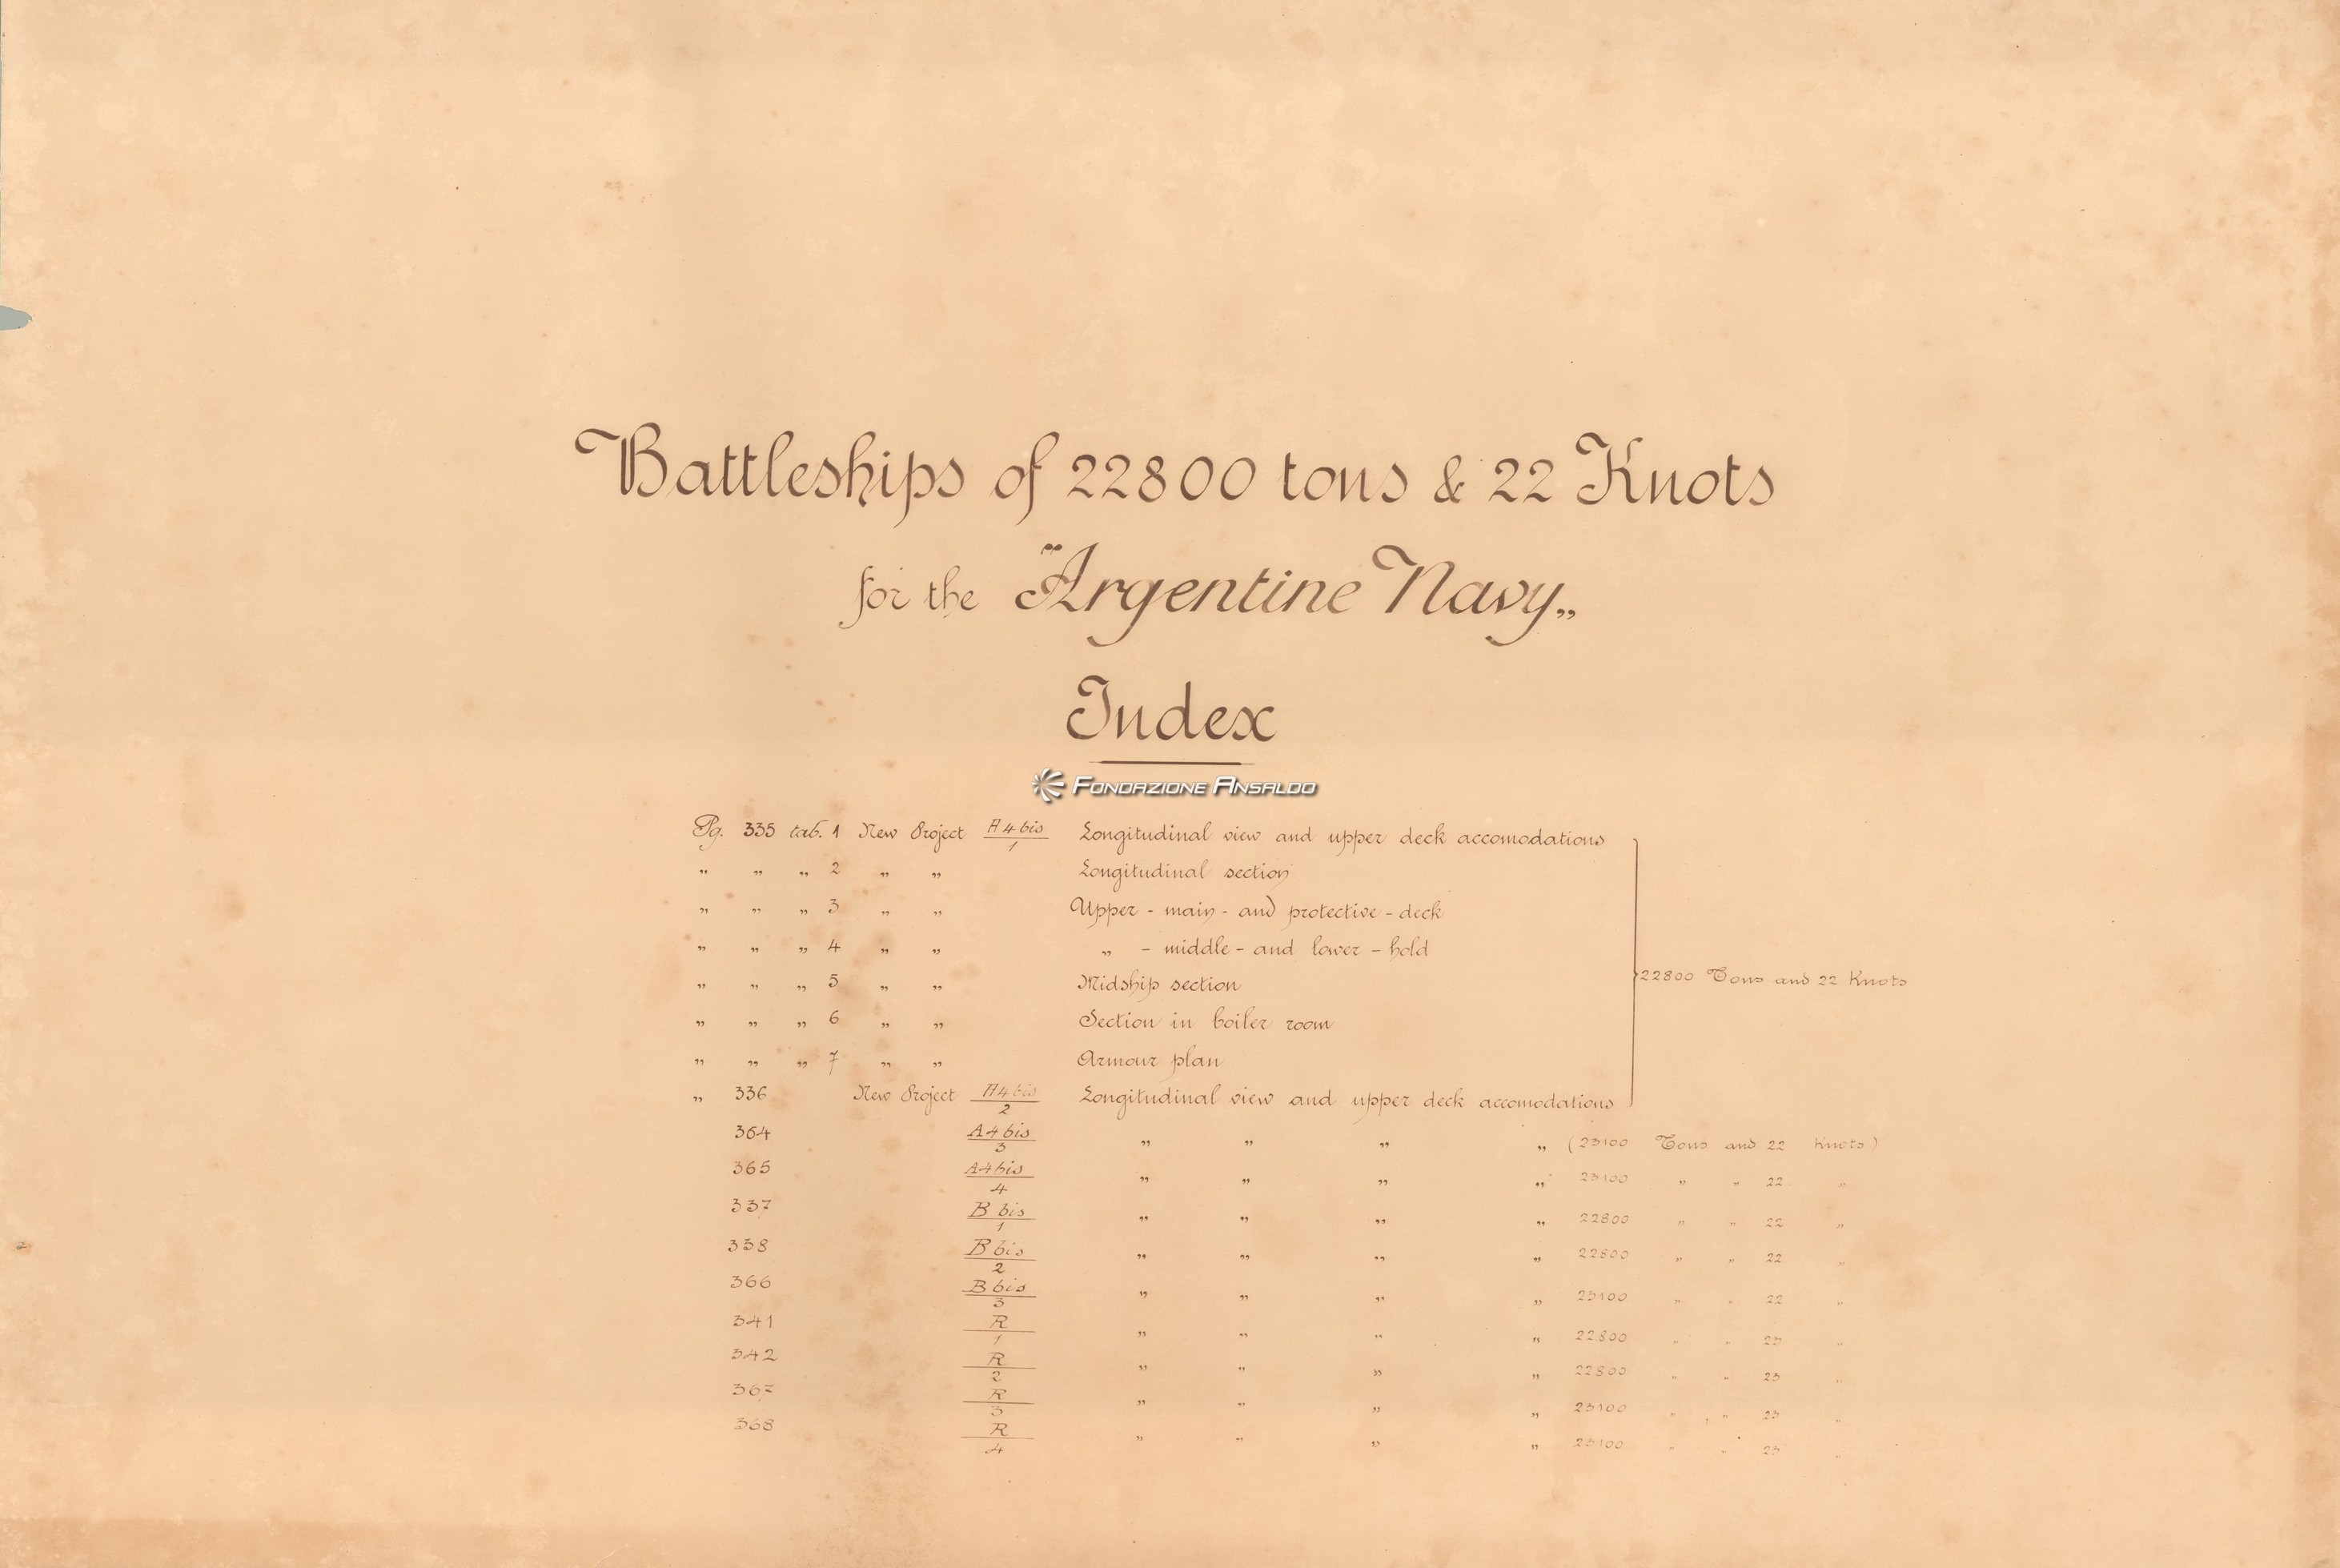 Battleships of 22800 tons & 22 Knots
for the "Argentine Navy„
Index
Fondazione Ansaldo
Pg. 335 tab. 1 New Project A4 bis/1 Longitudinal view and upper deck accomodations
„ „ „ 2 „ „ Longitudinal section
„ „ „ 3 „ „ Upper - main - and protective - deck
„ „ „ 4 „ „ „ - middle - and lower - hold
„ „ „ 5 „ „ Midship section
22800 Tons and 22 Knots
„ „ „ 6 „ „ Section in boiler room
„ „ „ 7 „ „ Armour plan
„ 336 New Project A4 bis/2 Longitudinal view and upper deck accomodations
364 A4 bis/3 „ „ „ „ (23100 Tons and 22 Knots)
365 A4 bis/4 „ „ „ „ 23100 „ „ 22 „
337 B bis/1 „ „ „ „ 22800 „ „ 22 „
338 B bis/2 „ „ „ „ 22800 „ „ 22 „
366 B bis/3 „ „ „ „ 23100 „ „ 22 „
341 R/1 „ „ „ „ 22800 „ „ 23 „
342 R/2 „ „ „ „ 22800 „ „ 23 „
367 R/3 „ „ „ „ 23100 „ „ 23 „
368 R/4 „ „ „ „ 23100 „ „ 23 „